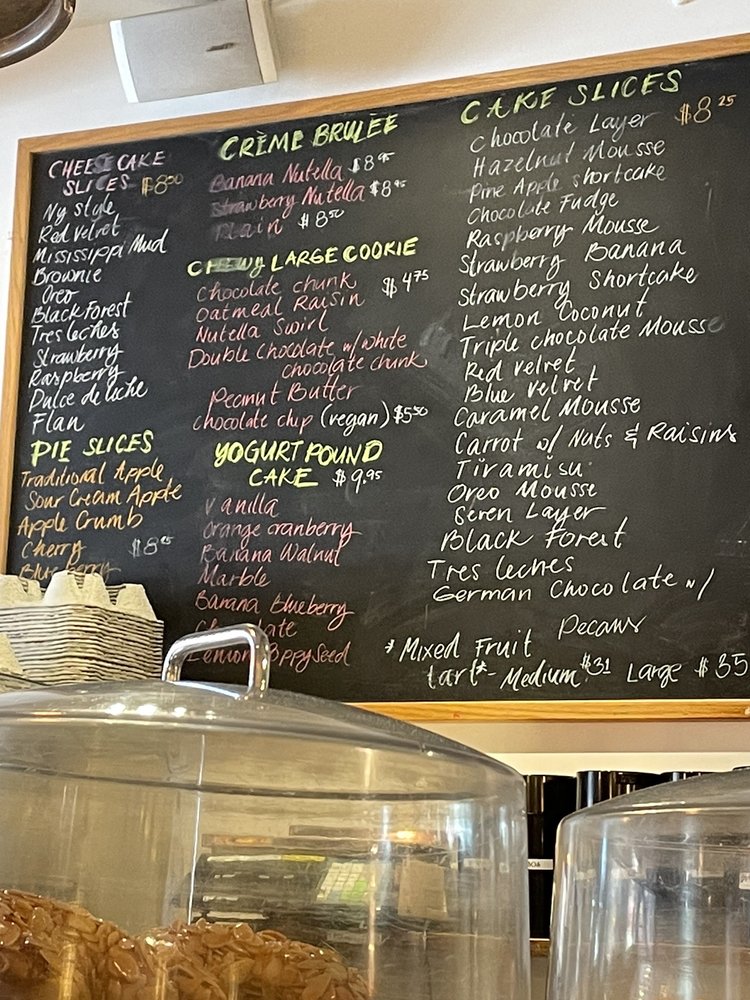 CHEESE CAKE
SLICES $8.50
Ny style
Red velvet
Mississippi Mud
Brownie
Oreo
Black Forest
Tres leches
Strawberry
Raspberry
Dulce de leche
Flan
PIE SLICES
Traditional Apple
Sour Cream Apple
Apple Crumb
Cherry
Blueberry
CRÈME BRULÉE
Banana Nutella
Strawberry Nutella
Plain $8.50
CHEWY LARGE COOKIE
Chocolate chunk $4.75
Oatmeal Raisin
Nutella Swirl
Double Chocolate w/ white
chocolate chunk
Peanut Butter
chocolate chip (vegan) $5.50
YOGURT POUND
CAKE $9.95
Vanilla
Orange cranberry
Banana Walnut
Marble
Banana Blueberry
Chocolate
Lemon Poppyseed
CAKE SLICES
Chocolate Layer $8.25
Hazelnut Mousse
Pine Apple shortcake
Chocolate Fudge
Raspberry Mousse
Strawberry Banana
Strawberry Shortcake
Lemon Coconut
Triple chocolate Mousse
Red velvet
Blue velvet
Caramel Mousse
Carrot w/ Nuts & Raisins
Tiramisu
Oreo Mousse
Seven Layer
Black Forest
Tres leches
German Chocolate w/
Pecans
*Mixed Fruit
tart*- Medium $31 Large $35